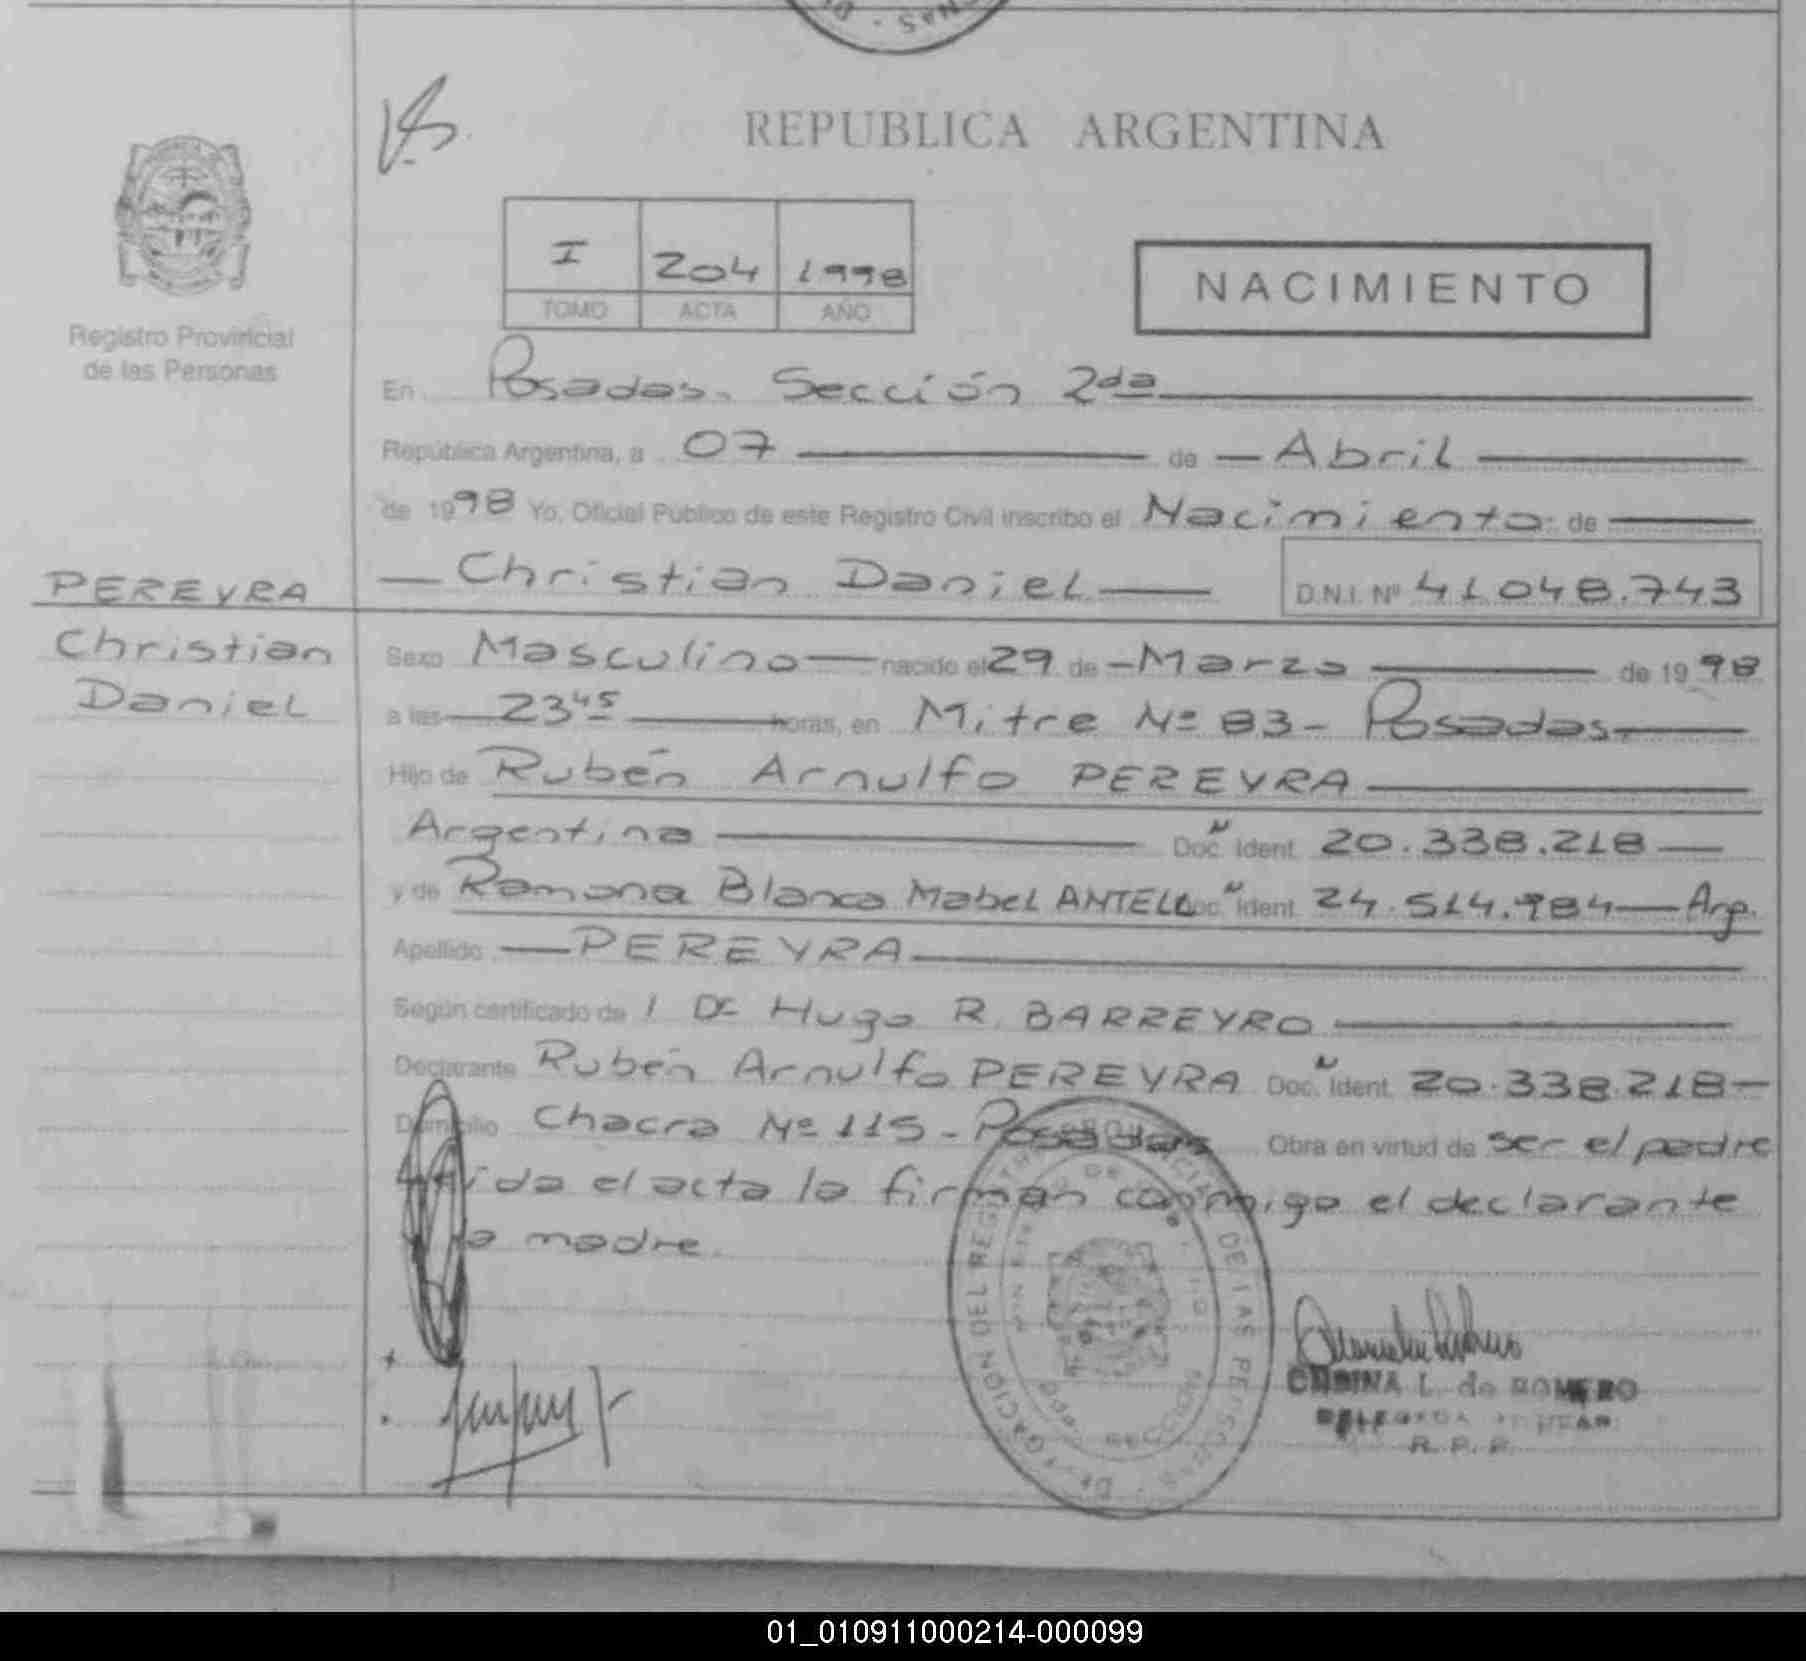 REPUBLICA ARGENTINA
I 204 1998
TOMO ACTA AÑO
NACIMIENTO
Registro Provincial
de las Personas
En Posadas. Sección 2da
República Argentina, a 07 de Abril
de 1998 Yo, Oficial Público de este Registro Civil inscribo el Nacimiento de
Christian Daniel D.N.I. Nº 41.048.743
PEREYRA
Christian
Daniel
Sexo Masculino nacido el 29 de Marzo de 1998
a las 23 45 horas, en Mitre Nº 83 - Posadas
Hijo de Rubén Arnulfo PEREYRA
Argentina Doc. Ident. 20.338.218
y de Ramona Blanca Mabel ANTELO Doc. Ident. 24.514.984 Arg.
Apellido PEREYRA
Según certificado de 1 Dr Hugo R. BARREYRO
Declarante Rubén Arnulfo PEREYRA Doc. Ident. 20.338.218
Domicilio Chacra Nº 115 - Posadas Obra en virtud de ser el padre
Leída el acta la firman conmigo el declarante
la madre.
DELEGACION DEL REGISTRO PROVINCIAL DE LAS PERSONAS
SECCION
L. de ROMERO
DELEGADA TITULAR
R. P. P.
01_010911000214-000099